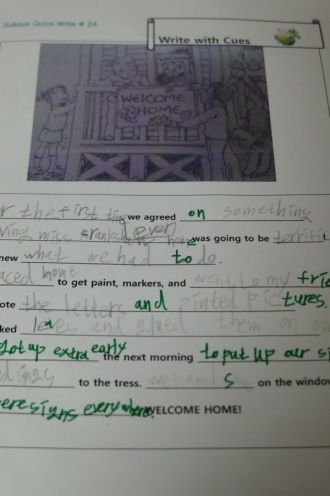 Quick Write # 24
Write with Cues
WELCOME
HOME
r the first time we agreed on something
ving miss cranked ever home was going to be terrifi
new what we had to do.
aced home to get paint, markers, and went to my frie
ote the letters and pinted pictures.
ked leaves and glued them on
Got up extra early the next morning to put up our si
ed signs to the tress. we s on the window
ere signs everywhere. WELCOME HOME!